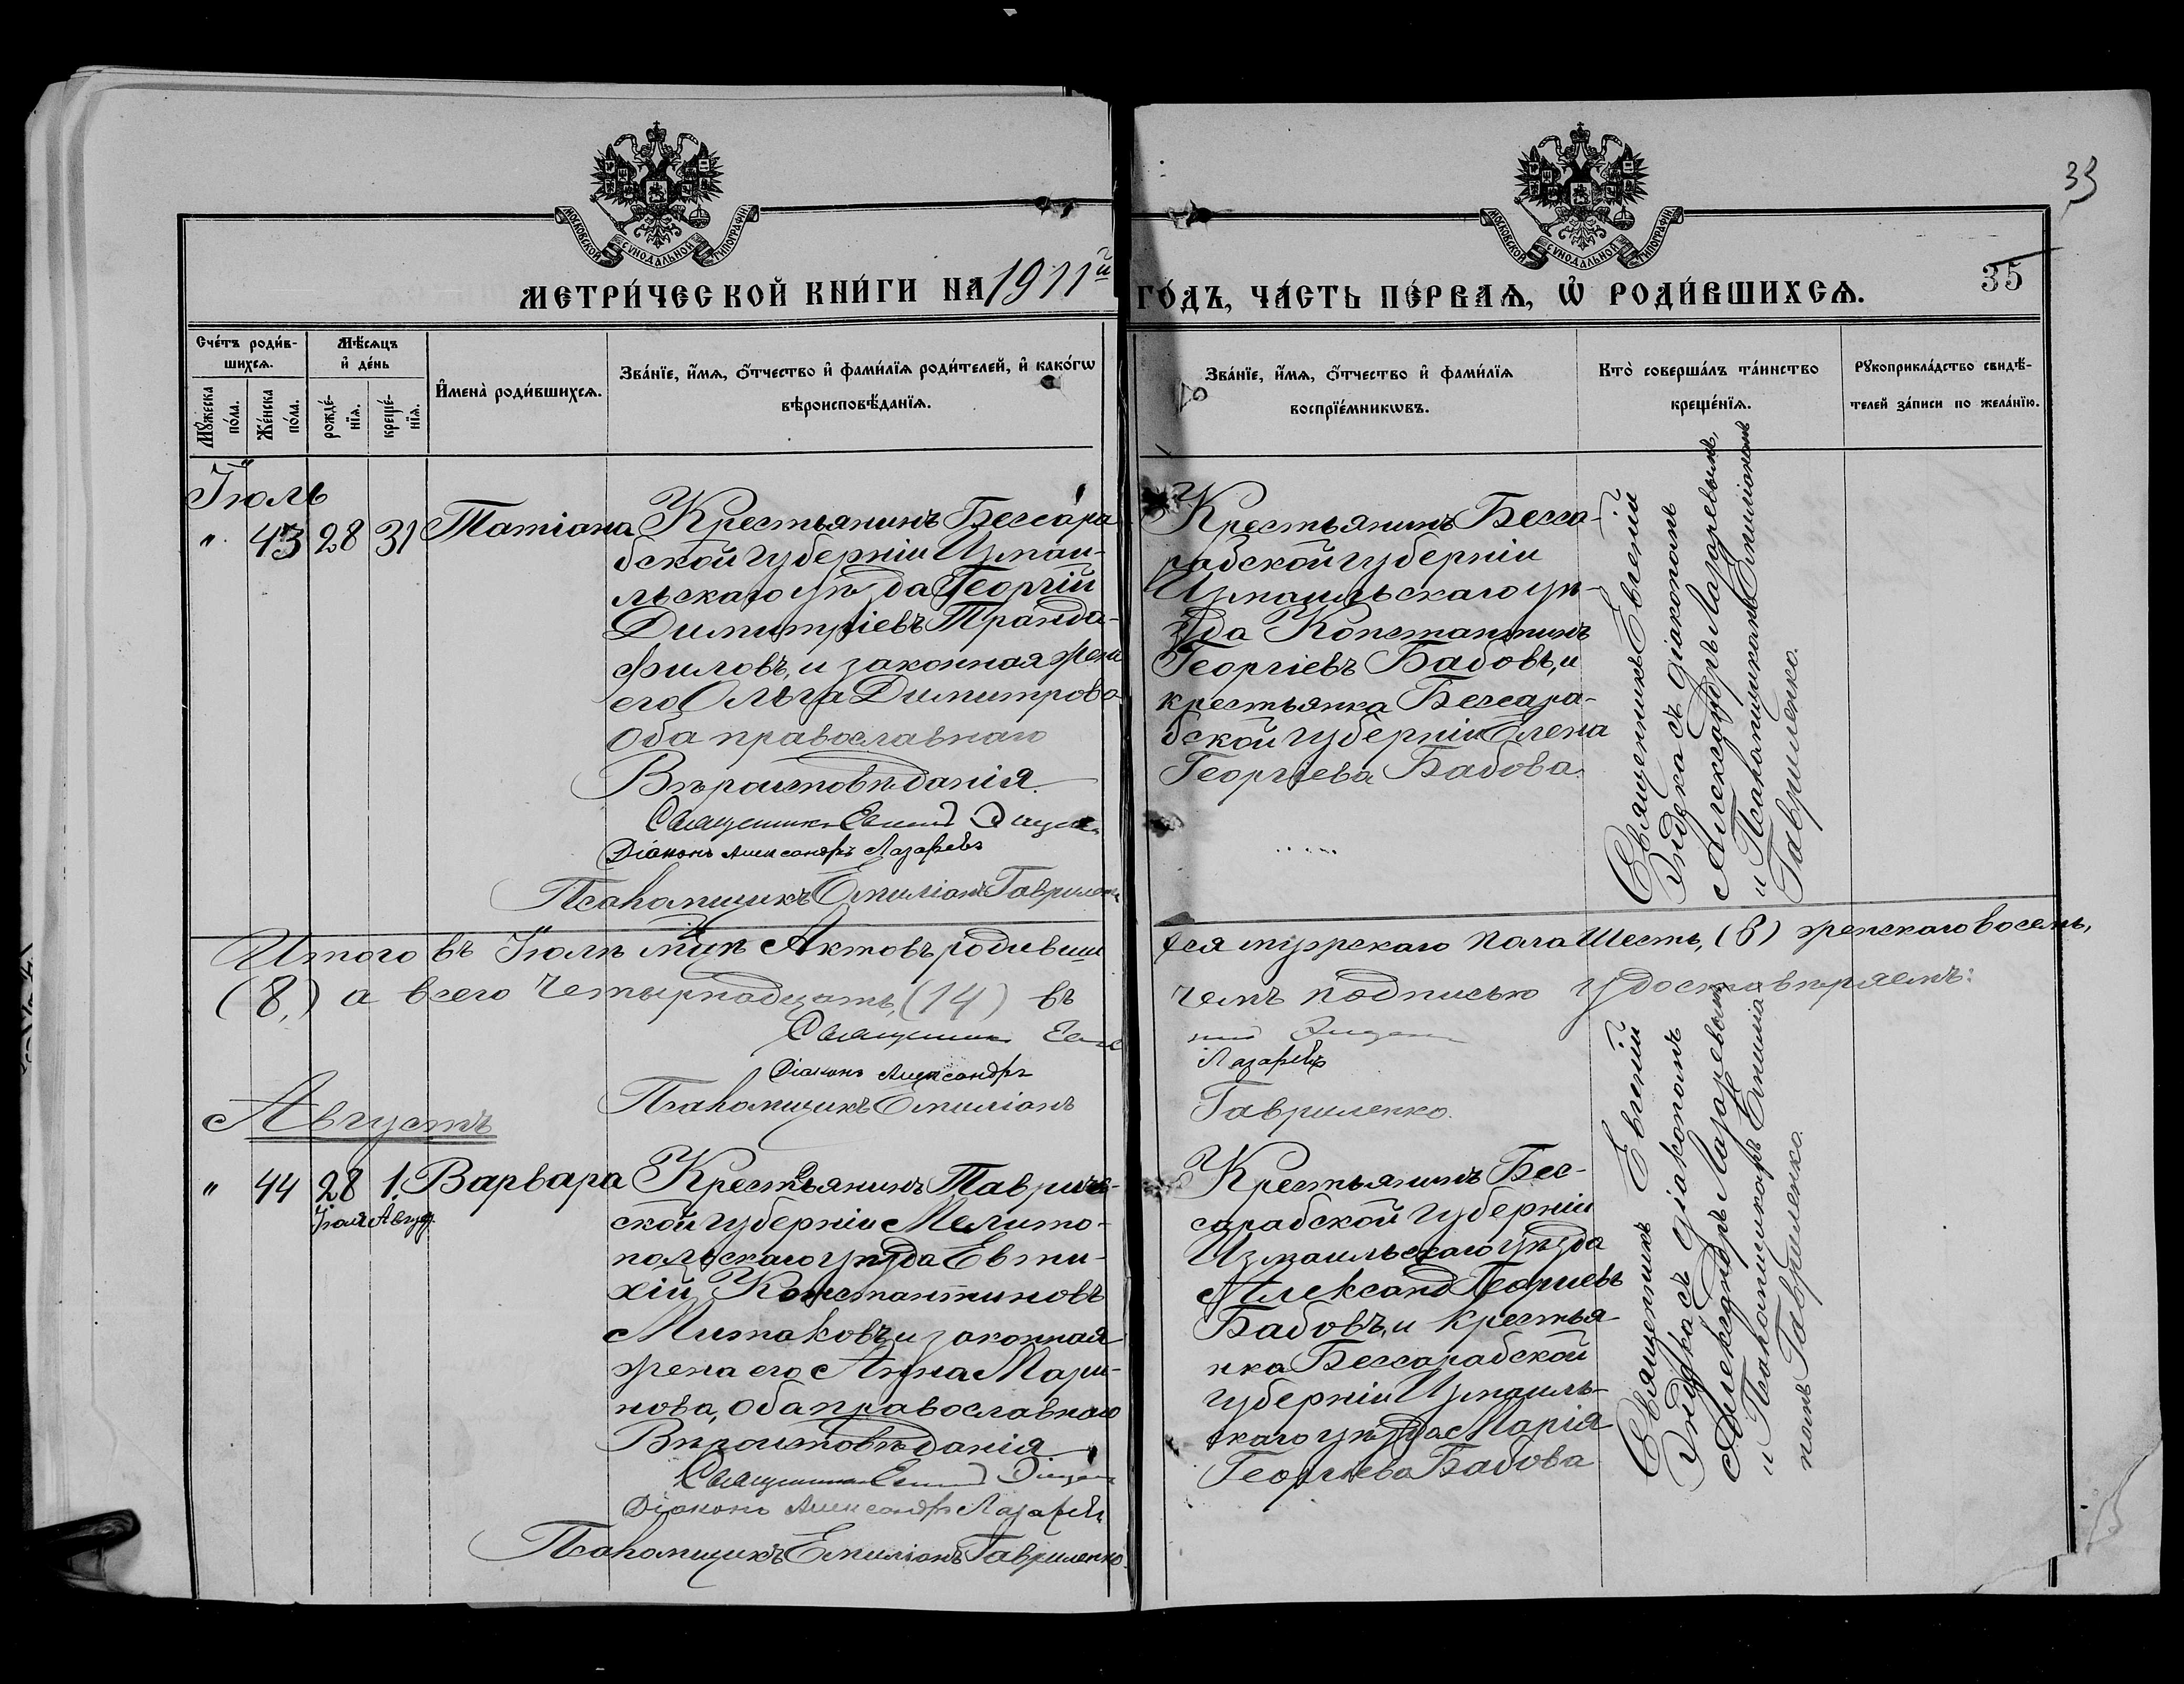 33
МОСКОВСКОЙ СУНОДАЛЬНОЙ ТИПОГРАФІИ
МОСКОВСКОЙ СУНОДАЛЬНОЙ ТИПОГРАФІИ
МЕТРИ́ЧЕСКОЙ КНИ́ГИ НА 1911й ГО́ДЪ, ЧА́СТЬ ПЕ́РВАѦ, Ѡ҆ РОДИ́ВШИХСѦ.
35
Сче́тъ роди́в-
шихсѧ.
Мꙋ́жеска
по́ла.
Же́нска
по́ла.
Мѣ́сѧцъ
и҆ де́нь
рожде́-
нїѧ.
креще́-
нїѧ.
И҆мена̀ роди́вшихсѧ.
Зва́нїе, и҆́мѧ, ѻ҆́тчество и҆ фами́лїѧ роди́телей, и҆ како́гѡ
вѣроисповѣ́данїѧ.
Зва́нїе, и҆́мѧ, ѻ҆́тчество и҆ фами́лїѧ
воспрїе́мникѡвъ.
Кто̀ соверша́лъ та́инство
креще́нїѧ.
Рꙋкоприкла́дство свидѣ́-
телей за́писи по жела́нїю.
Іюль
" 43 28 31 Татіана
Крестьянинъ Бессара
бской губерніи Измаи-
льскаго уѣзда Георгій
Димитріевъ Транда-
филовъ, и законная жена
его Ольга Димитрова
Оба православнаго
Вѣроисповѣданія.
Священникъ Евгеній
Діаконъ Александръ Лазаревъ
Псаломщикъ Емиліанъ Гавриленко
Крестьянинъ Бесса-
рабской губерніи
Измаильскаго уѣ-
зда Константинъ
Георгіевъ Бабовъ, и
крестьянка Бессара-
бской губерніи Елена
Георгіева Бабова.
Священникъ Евгеній
съ діакономъ
Александръ Лазаревымъ,
и Псаломщикомъ Емиліаномъ
Гавриленко.
Итого въ Іюлѣ м-цѣ Актовъ родивши
тся мужскаго пола Шесть, (6) женскаго восемь,
(8,) а всего Четырнадцать, (14) въ
чемъ подписью удостовѣряемъ:
Священникъ
Діаконъ Александръ Лазаревъ
Псаломщикъ Емиліанъ Гавриленко.
Августъ
" 44 28 1. Варвара
Іюля Авгус.
Крестьянинъ Тавриче-
ской губерніи Мелито-
польскаго уѣзда Евти-
хій Константиновъ
Митаковъ, и законная
жена его Анна Мари-
нова, Оба православнаго
Вѣроисповѣданія
Священникъ Евгеній
Діаконъ Александръ Лазаревъ
Псаломщикъ Емиліанъ Гавриленко.
Крестьянинъ Бес-
сарабской губерніи
Измаильскаго уѣзда
Александ Георгіевъ
Бабовъ, и крестья
нка Бессарабской
губерніи Измаиль-
скаго уѣзда Марія
Георгіева Бабова
Священникъ Евгеній
съ діакономъ
Александръ Лазаревымъ
и Псаломщикомъ Емиліа-
номъ Гавриленко.